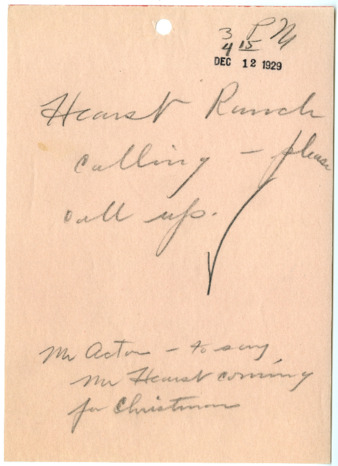 3 PM
4 15
DEC 12 1929
Hearst Ranch
calling – please
call up.
Mr Acton – to say
Mr Hearst coming
for Christmas